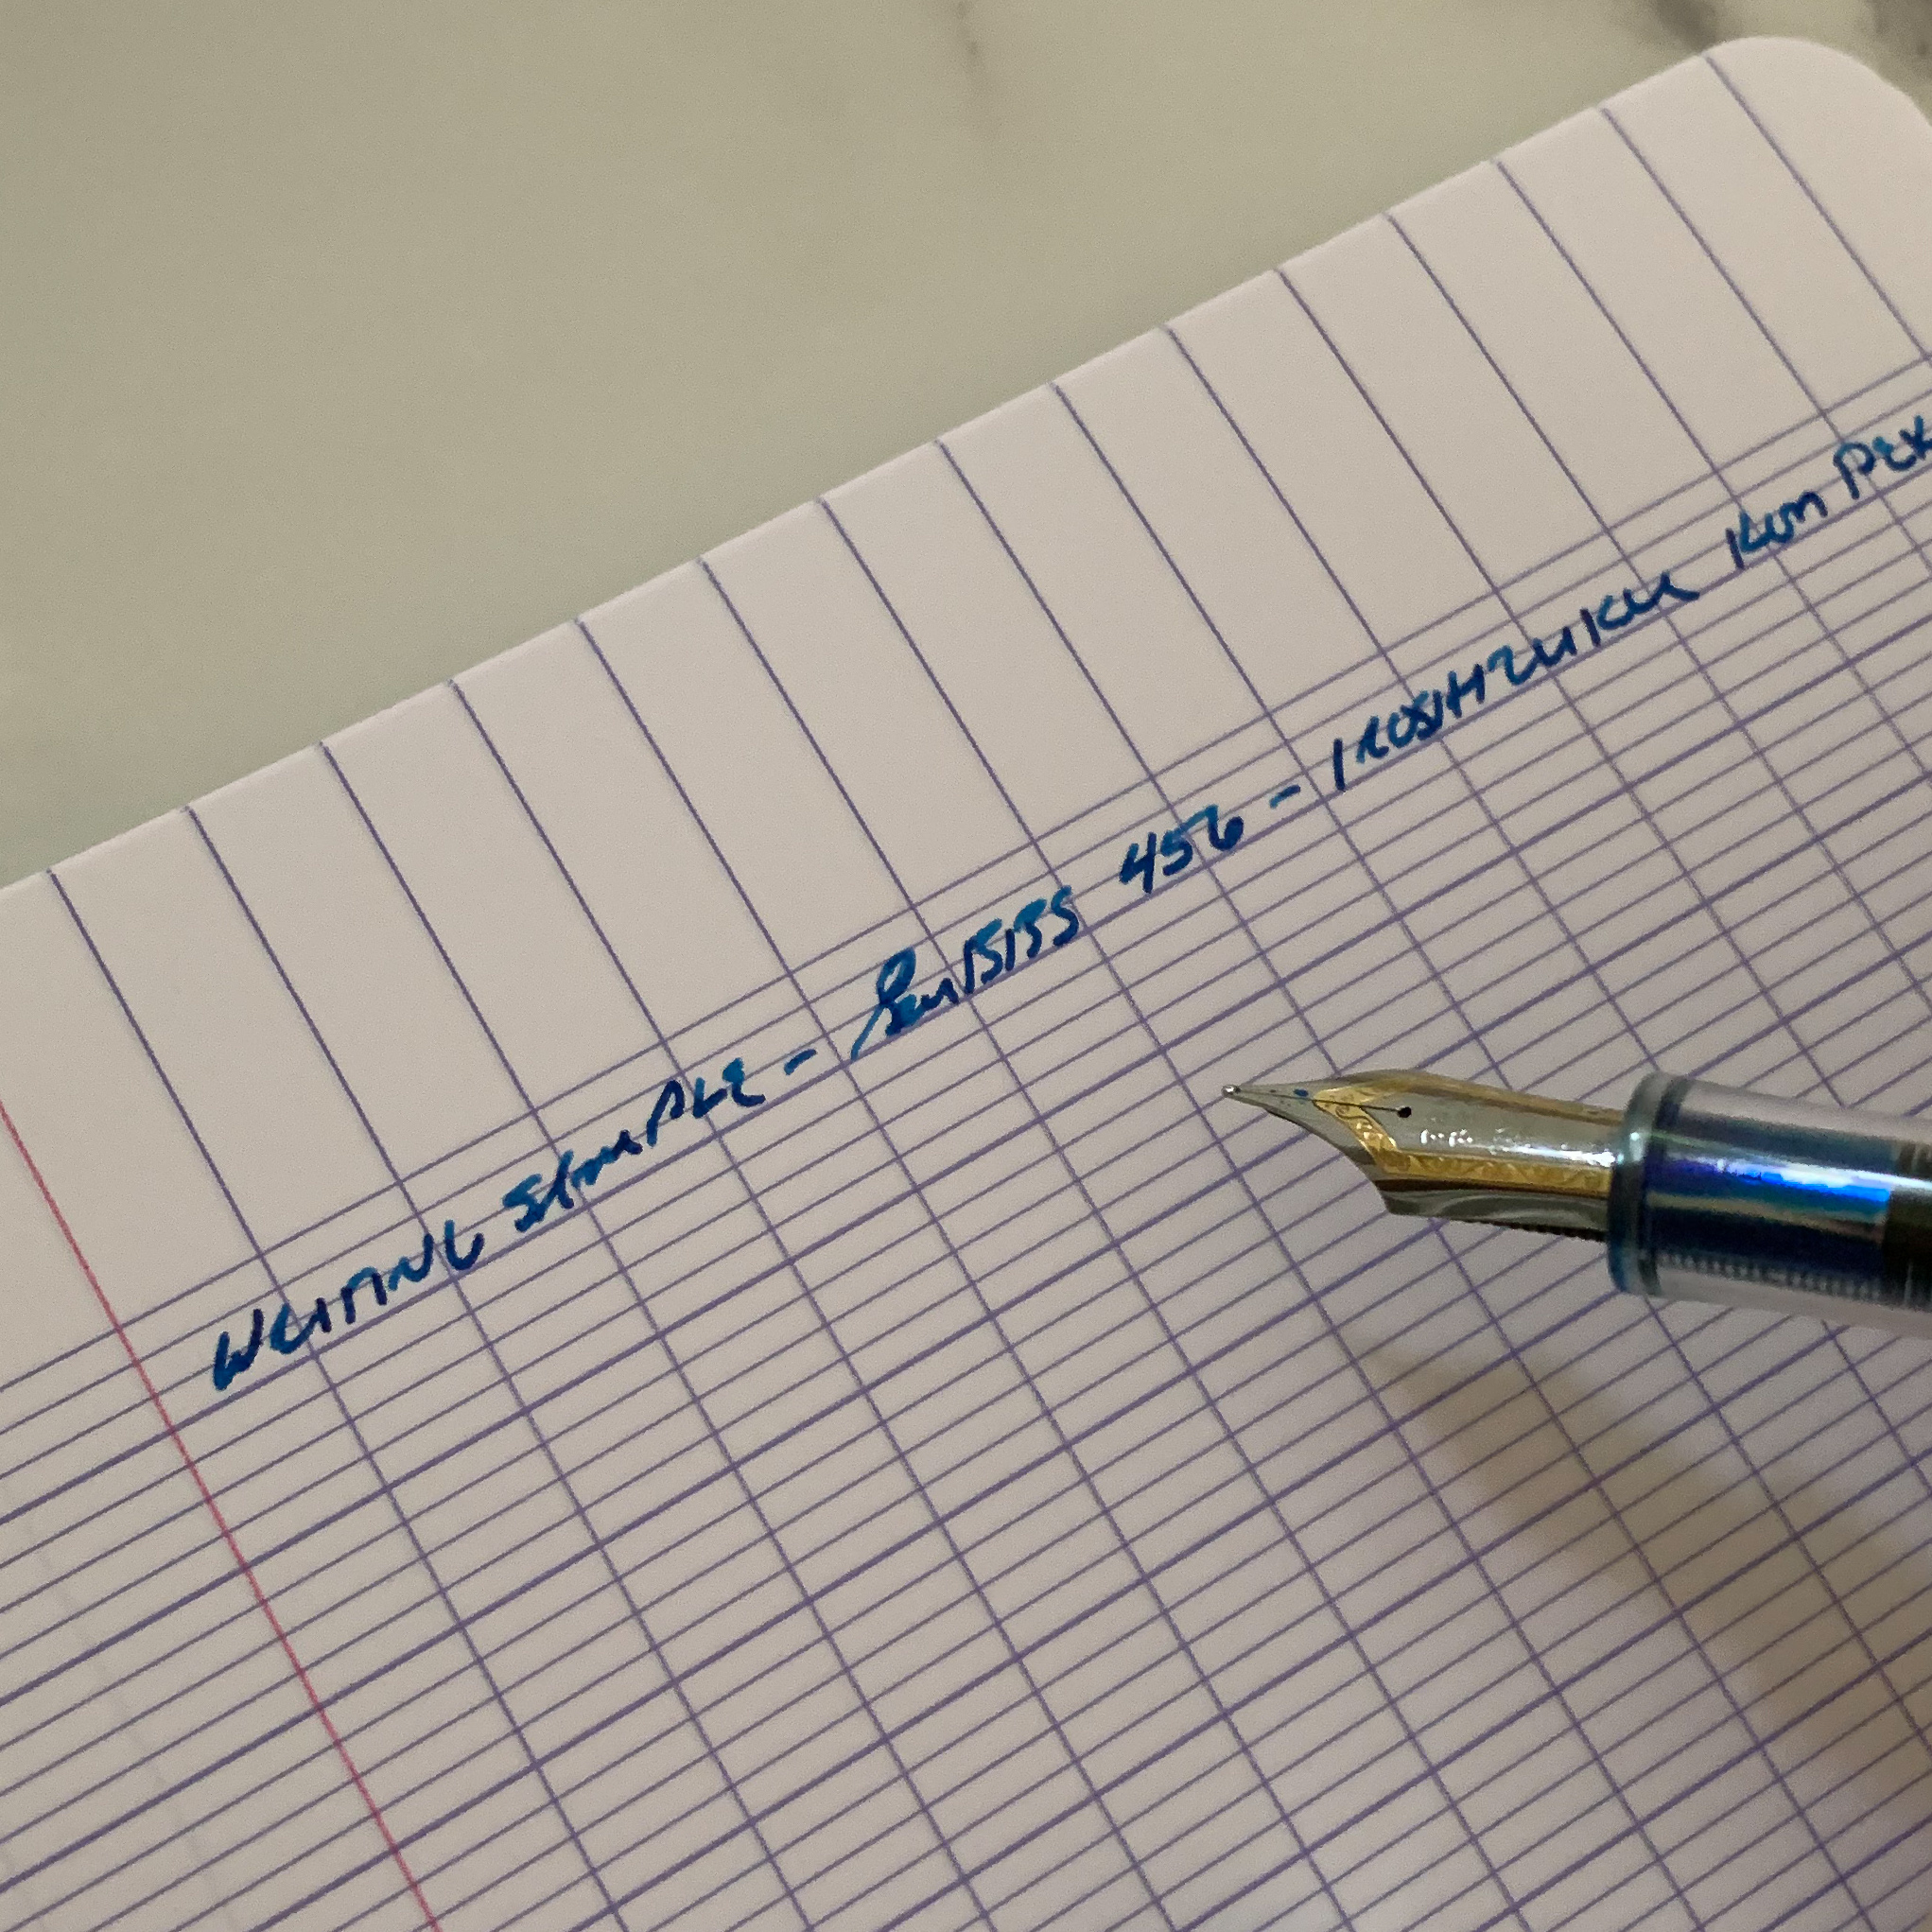 WRITING SAMPLE - PenBBS 456 - IROSHIZUKU KON PEK